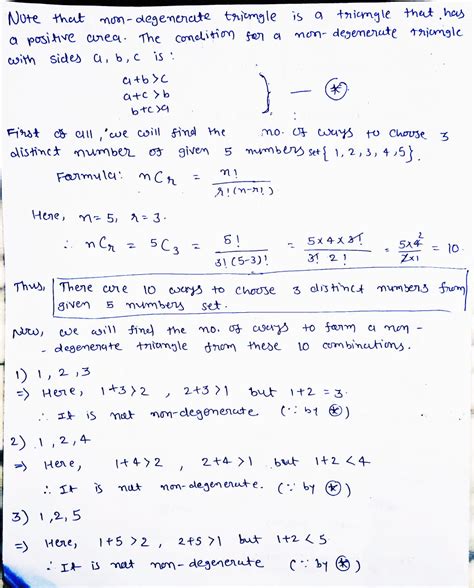 Note that non-degenerate triangle is a triangle that has
a positive area. The condition for a non-degenerate triangle
with sides a, b, c is :
a+b>c
a+c>b
b+c>a
} — ⊛
First of all, we will find the no. of ways to choose 3
distinct number of given 5 numbers set {1, 2, 3, 4, 5}.
Formula: nCr = n! / r!(n-r!)
Here, n= 5, r = 3.
∴ nCr = 5C3 = 5! / 3!(5-3)! = 5x4x3! / 3! 2! = 5x4 2 / 2x1 = 10.
Thus, There are 10 ways to choose 3 distinct numbers from
given 5 numbers set.
Now, we will find the no. of ways to form a non-
-degenerate triangle from these 10 combinations.
1) 1, 2, 3
⇒ Here, 1+3>2 , 2+3>1 but 1+2 = 3.
∴ It is not non-degenerate (∵ by ⊛)
2) 1, 2, 4
⇒ Here, 1+4>2 , 2+4>1 but 1+2<4
∴ It is not non-degenerate. (∵ by ⊛)
3) 1,2,5
⇒ Here, 1+5>2 , 2+5>1 but 1+2<5
∴ It is not non-degenerate (∵ by ⊛)